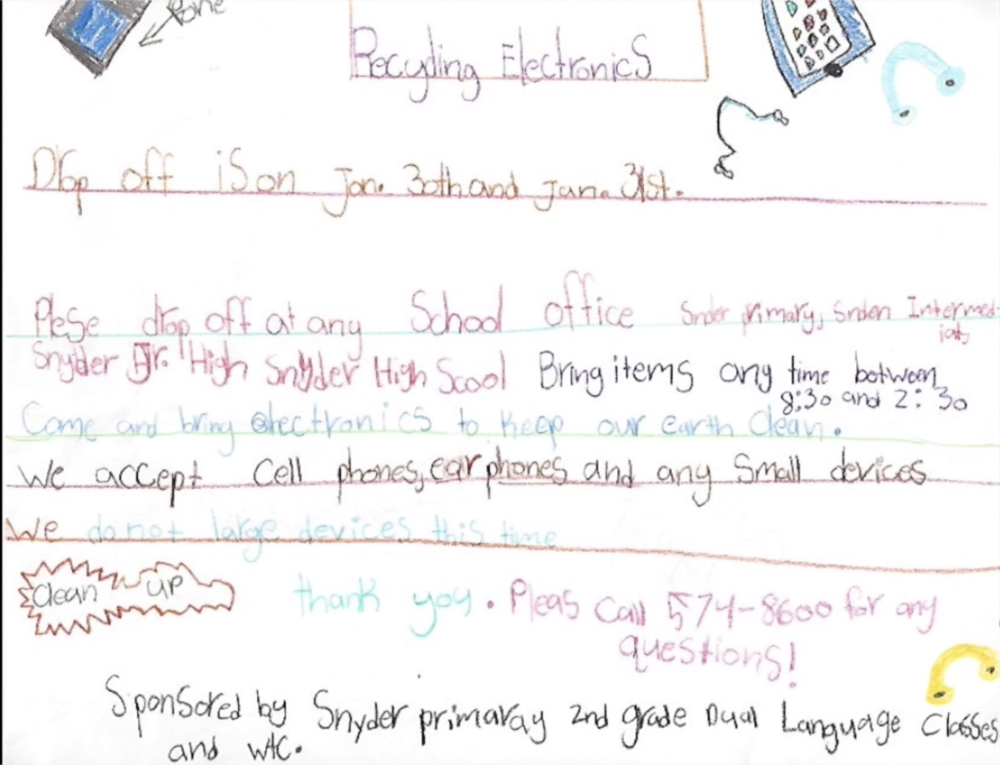 Pone
Recycling Electronics
Drop off is on Jan. 30th and Jan. 31st.
Plese drop off at any School office Snder primary, Snden Intermed
iat,
Snyder Jr. High Snyder High Scool Bring items any time between
8:30 and 2:30
Come and bring electronics to keep our earth clean.
We accept Cell phones, earphones and any Small devices
We do not large devices this time
Clean up
thank you. Pleas Call 574-8600 for any
questions!
Sponsored by Snyder primaray 2nd grade Dual Language Classes
and WTC.